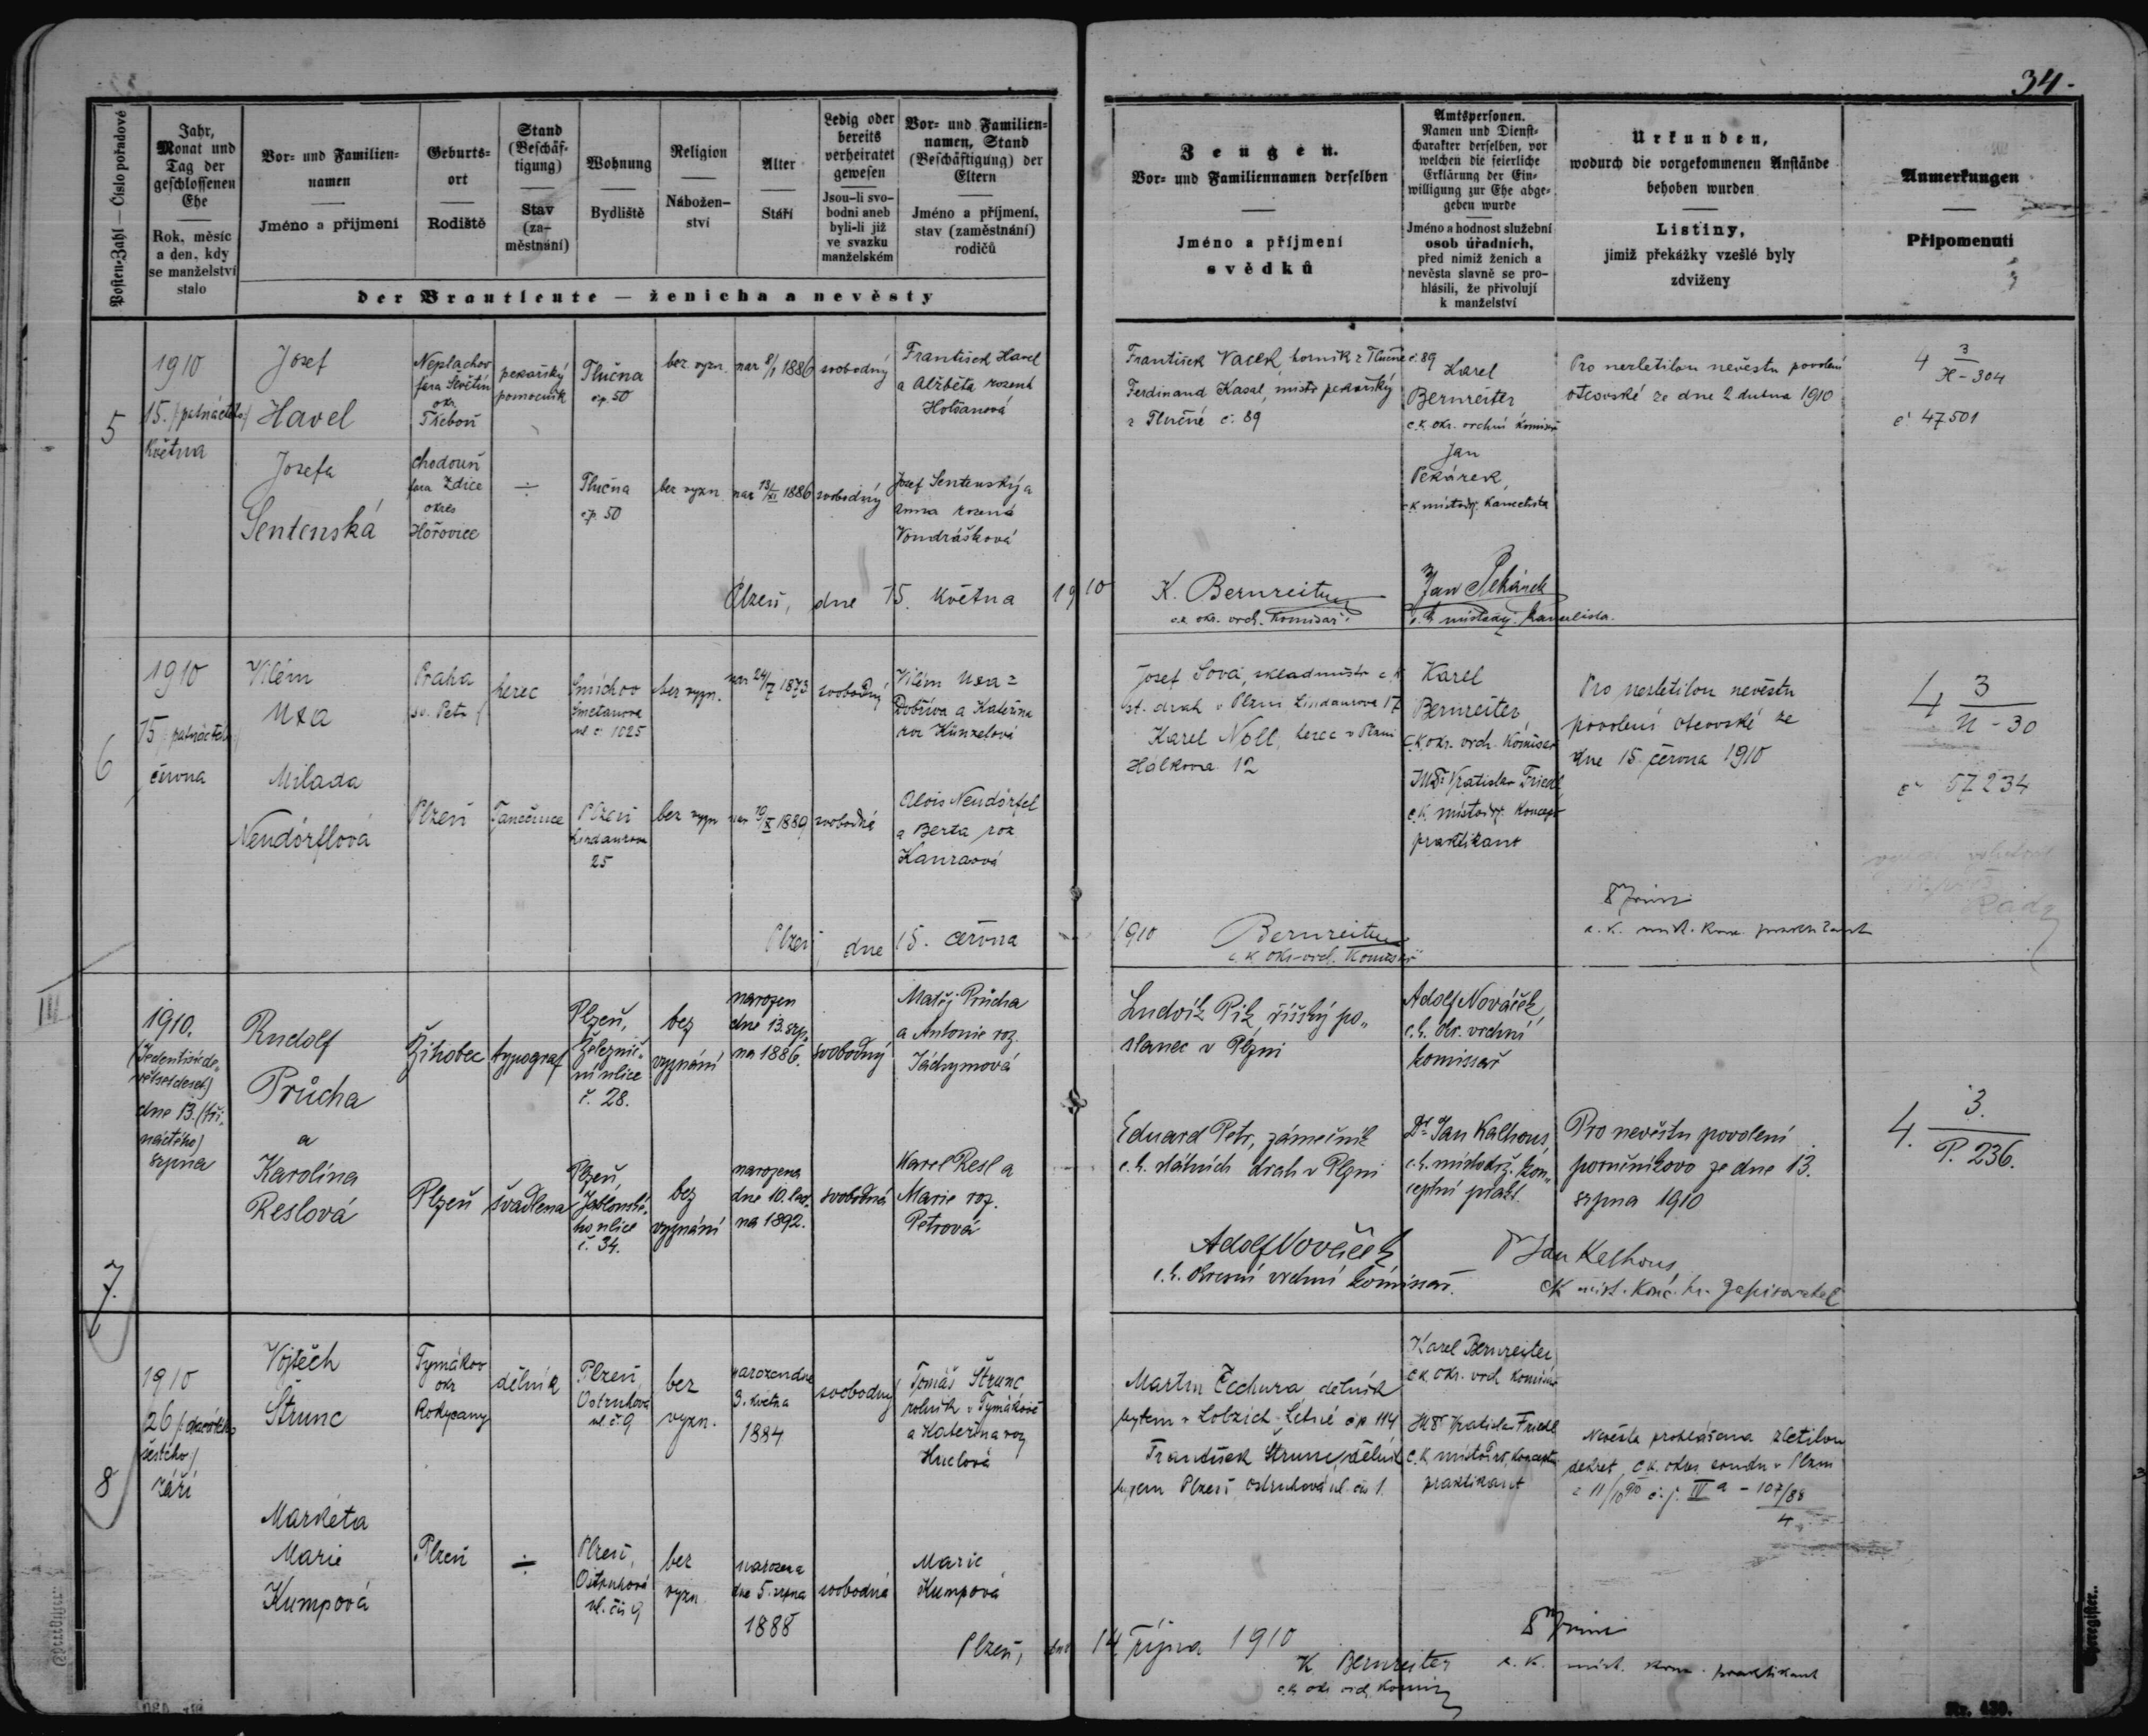 34.
Posten-Zahl — Číslo pořadové
Jahr, Monat und Tag der geschlossenen Ehe
Rok, měsíc a den, kdy se manželství stalo
Vor- und Familiennamen
Jméno a příjmení
Geburtsort
Rodiště
Stand (Beschäftigung)
Stav (zaměstnání)
Wohnung
Bydliště
Religion
Náboženství
Alter
Stáří
Ledig oder bereits verheiratet gewesen
Jsou-li svobodni aneb byli-li již ve svazku manželském
Vor- und Familiennamen, Stand (Beschäftigung) der Eltern
Jméno a příjmení, stav (zaměstnání) rodičů
der Brautleute — ženicha a nevěsty
Zeugen.
Vor- und Familiennamen derselben
Jméno a příjmení
svědků
Amtspersonen.
Namen und Dienstcharakter derselben, vor welchen die feierliche Erklärung der Einwilligung zur Ehe abgegeben wurde
Jméno a hodnost služební osob úřadních, před nimiž ženich a nevěsta slavně se prohlásili, že přivolují k manželství
Urkunden,
wodurch die vorgekommenen Anstände
behoben wurden
Listiny,
jimiž překážky vzešlé byly
zdviženy
Anmerkungen
Připomenutí
5
1910
15. /patnáctého/
května
Josef
Havel
Neplachov
fara Ševětín
okr.
Třeboň
pekařský
pomocník
Tlučna
čp. 50
bez vyzn.
nar 8/1 1886
svobodný
František Havel
a Alžběta rozená
Josefa
Sentenská
Chodouň
fara Zdice
okres
Hořovice
÷
Tlučna
čp. 50
bez vyzn.
nar 13/XI 1886
svobodný
Josef Sentenský a
Anna rozená
Vondrášková
František Vacek, horník z Tlučné č. 89
Ferdinand Kasal, mistr pekařský
z Tlučné č. 89
Karel
Bernreiter
c.k. okr. vrchní komisař
Jan
Pekárek,
c.k. místodrž. kancelista
Pro nezletilou nevěstu povolení
otcovské ze dne 2 dubna 1910
4 3/H-304
č. 47501
Plzeň, dne 15. května 1910
K. Bernreiter
c.k. okr. vrch. komisař
Jan Pekárek
c.k. místodrž. kancelista.
6
1910
15 /patnáctého/
června
Vilém
Uxa
Praha
sv. Petr
herec
Smíchov
Smetanova
ul č. 1025
bez vyzn.
nar 24/7 1873
svobodný
Vilém Uxa z
Dobříva a Kateřina
roz Künzelová
Milada
Neudörflová
Plzeň
Tanečnice
Plzeň
Lindaurova
25
bez vyzn
nar 19/X 1889
svobodná
Alois Neudörfel
a Berta roz
Josef Sova, skladmistr c.k.
st. drah v Plzni Lindaurova 17
Karel Noll, herec v Plzni
Hálkova 12
Karel
Bernreiter,
c.k. okr. vrch. komisař
JUDr Vratislav Friedl,
c.k. místodrž. koncept
praktikant
Pro nezletilou nevěstu
povolení otcovské ze
dne 15. června 1910
4 3/U-30
č. 57234
Plzeň, dne 15. června 1910
Bernreiter
c.k. okr. vrch. komisař
c.k. míst. konc. praktikant
III
7.
1910.
(jedentisícdevětsetdeset)
dne 13. (třináctého)
srpna
Rudolf
Průcha
a
Žihobec
typograf
Plzeň,
Železniční ulice
č. 28.
bez
vyznání
narozen
dne 13. srpna 1886.
svobodný
Matěj Průcha
a Antonie roz.
Jáchymová
Karolína
Reslová
Plzeň
švadlena
Plzeň,
Jablonského ulice
č. 34.
bez
vyznání
narozena
svobodná
Karel Resl a
Marie roz.
Petrová
Ludvík Pik, říšský poslanec v Plzni
Adolf Nováček,
c.k. okr. vrchní
komissař
Eduard Petr, zámečník
c.k. státních drah v Plzni
Dr. Jan Kalhous,
c.k. místodrž. konceptní prakt.
Pro nevěstu povolení
poručníkovo ze dne 13.
srpna 1910
4. 3./P. 236.
Adolf Nováček
c.k. okresní vrchní komissař.
Dr Jan Kalhous
ck míst. konc. pr. zapisovatel
8
1910
26 /dvacátého
šestého/
září
Vojtěch
Štrunc
Tymákov
okr
Rokycany
dělník
Plzeň,
Ostruhová
ul. č. 9
bez
vyzn.
narozen dne
3. května
1884
svobodný
Tomáš Štrunc
rolník v Tymákově
a Kateřina roz
Markéta
Marie
Kumpová
Plzeň
÷
Plzeň,
Ostruhová
ul. čís 9
bez
vyzn.
narozena
dne 5. srpna
1888
svobodná
Marie
Kumpová
Martin Čechura, dělník
bytem v Lobzích-Letné čp. 114
František Štrunc, dělník
bytem Plzeň, Ostruhová ul. čís 1.
Karel Bernreiter
c.k. okr. vrch komisař
JUDr Vratislav Friedl
c.k. místodrž. konceptní
praktikant
Nevěsta prohlášena zletilou
dekret c.k. okres. soudu v Plzni
Plzeň, dne 14. října 1910
K Bernreiter
c.k. okr. vrch. komisař
c.k. míst. konc. praktikant